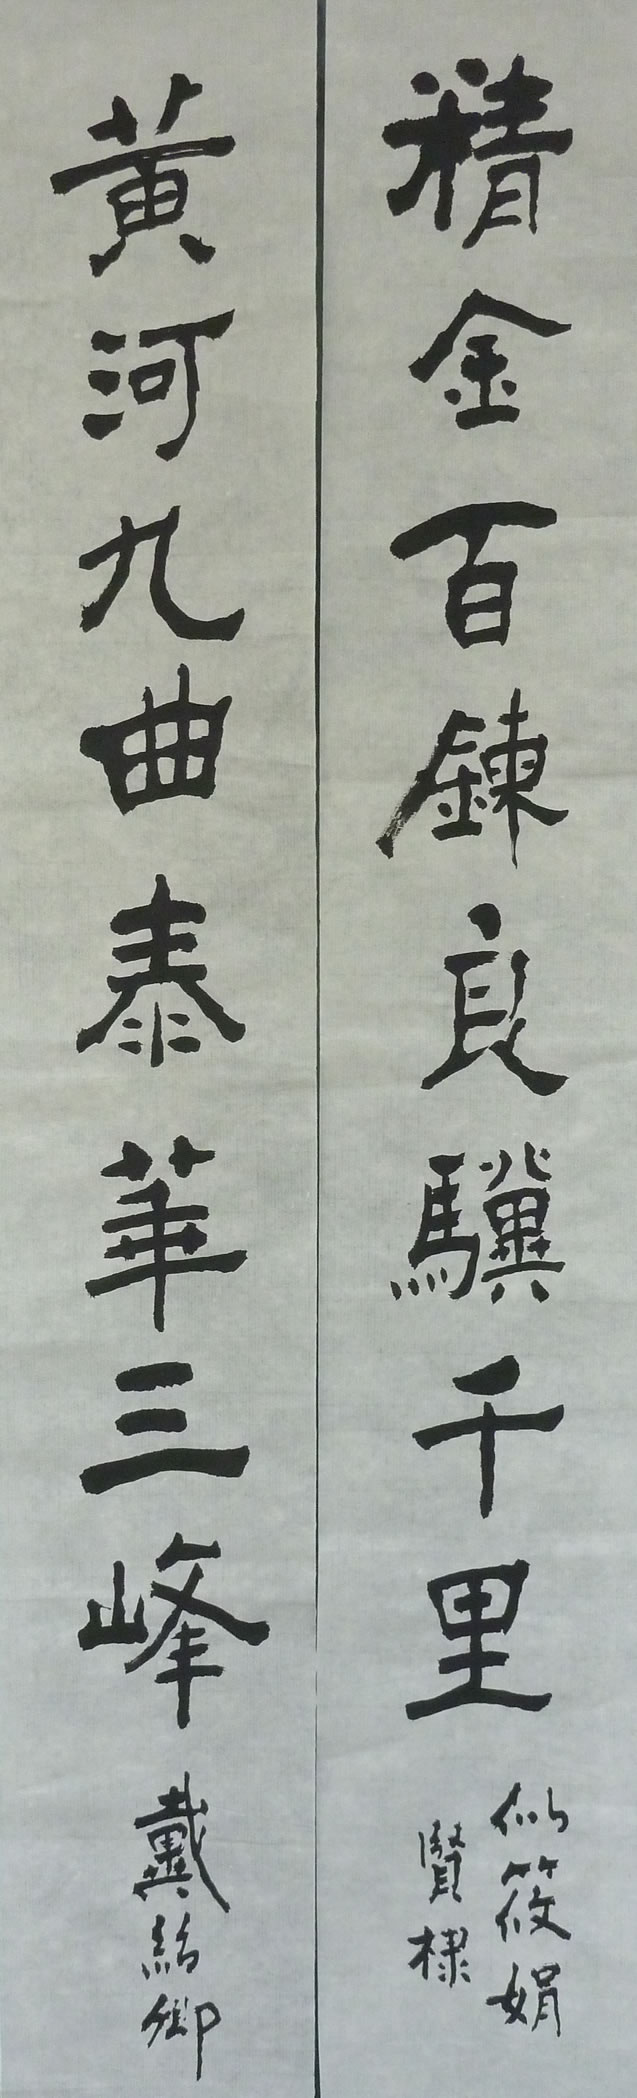 精金百鍊良驥千里
似筱娟
賢棣
黃河九曲泰華三峰
戴紹卿